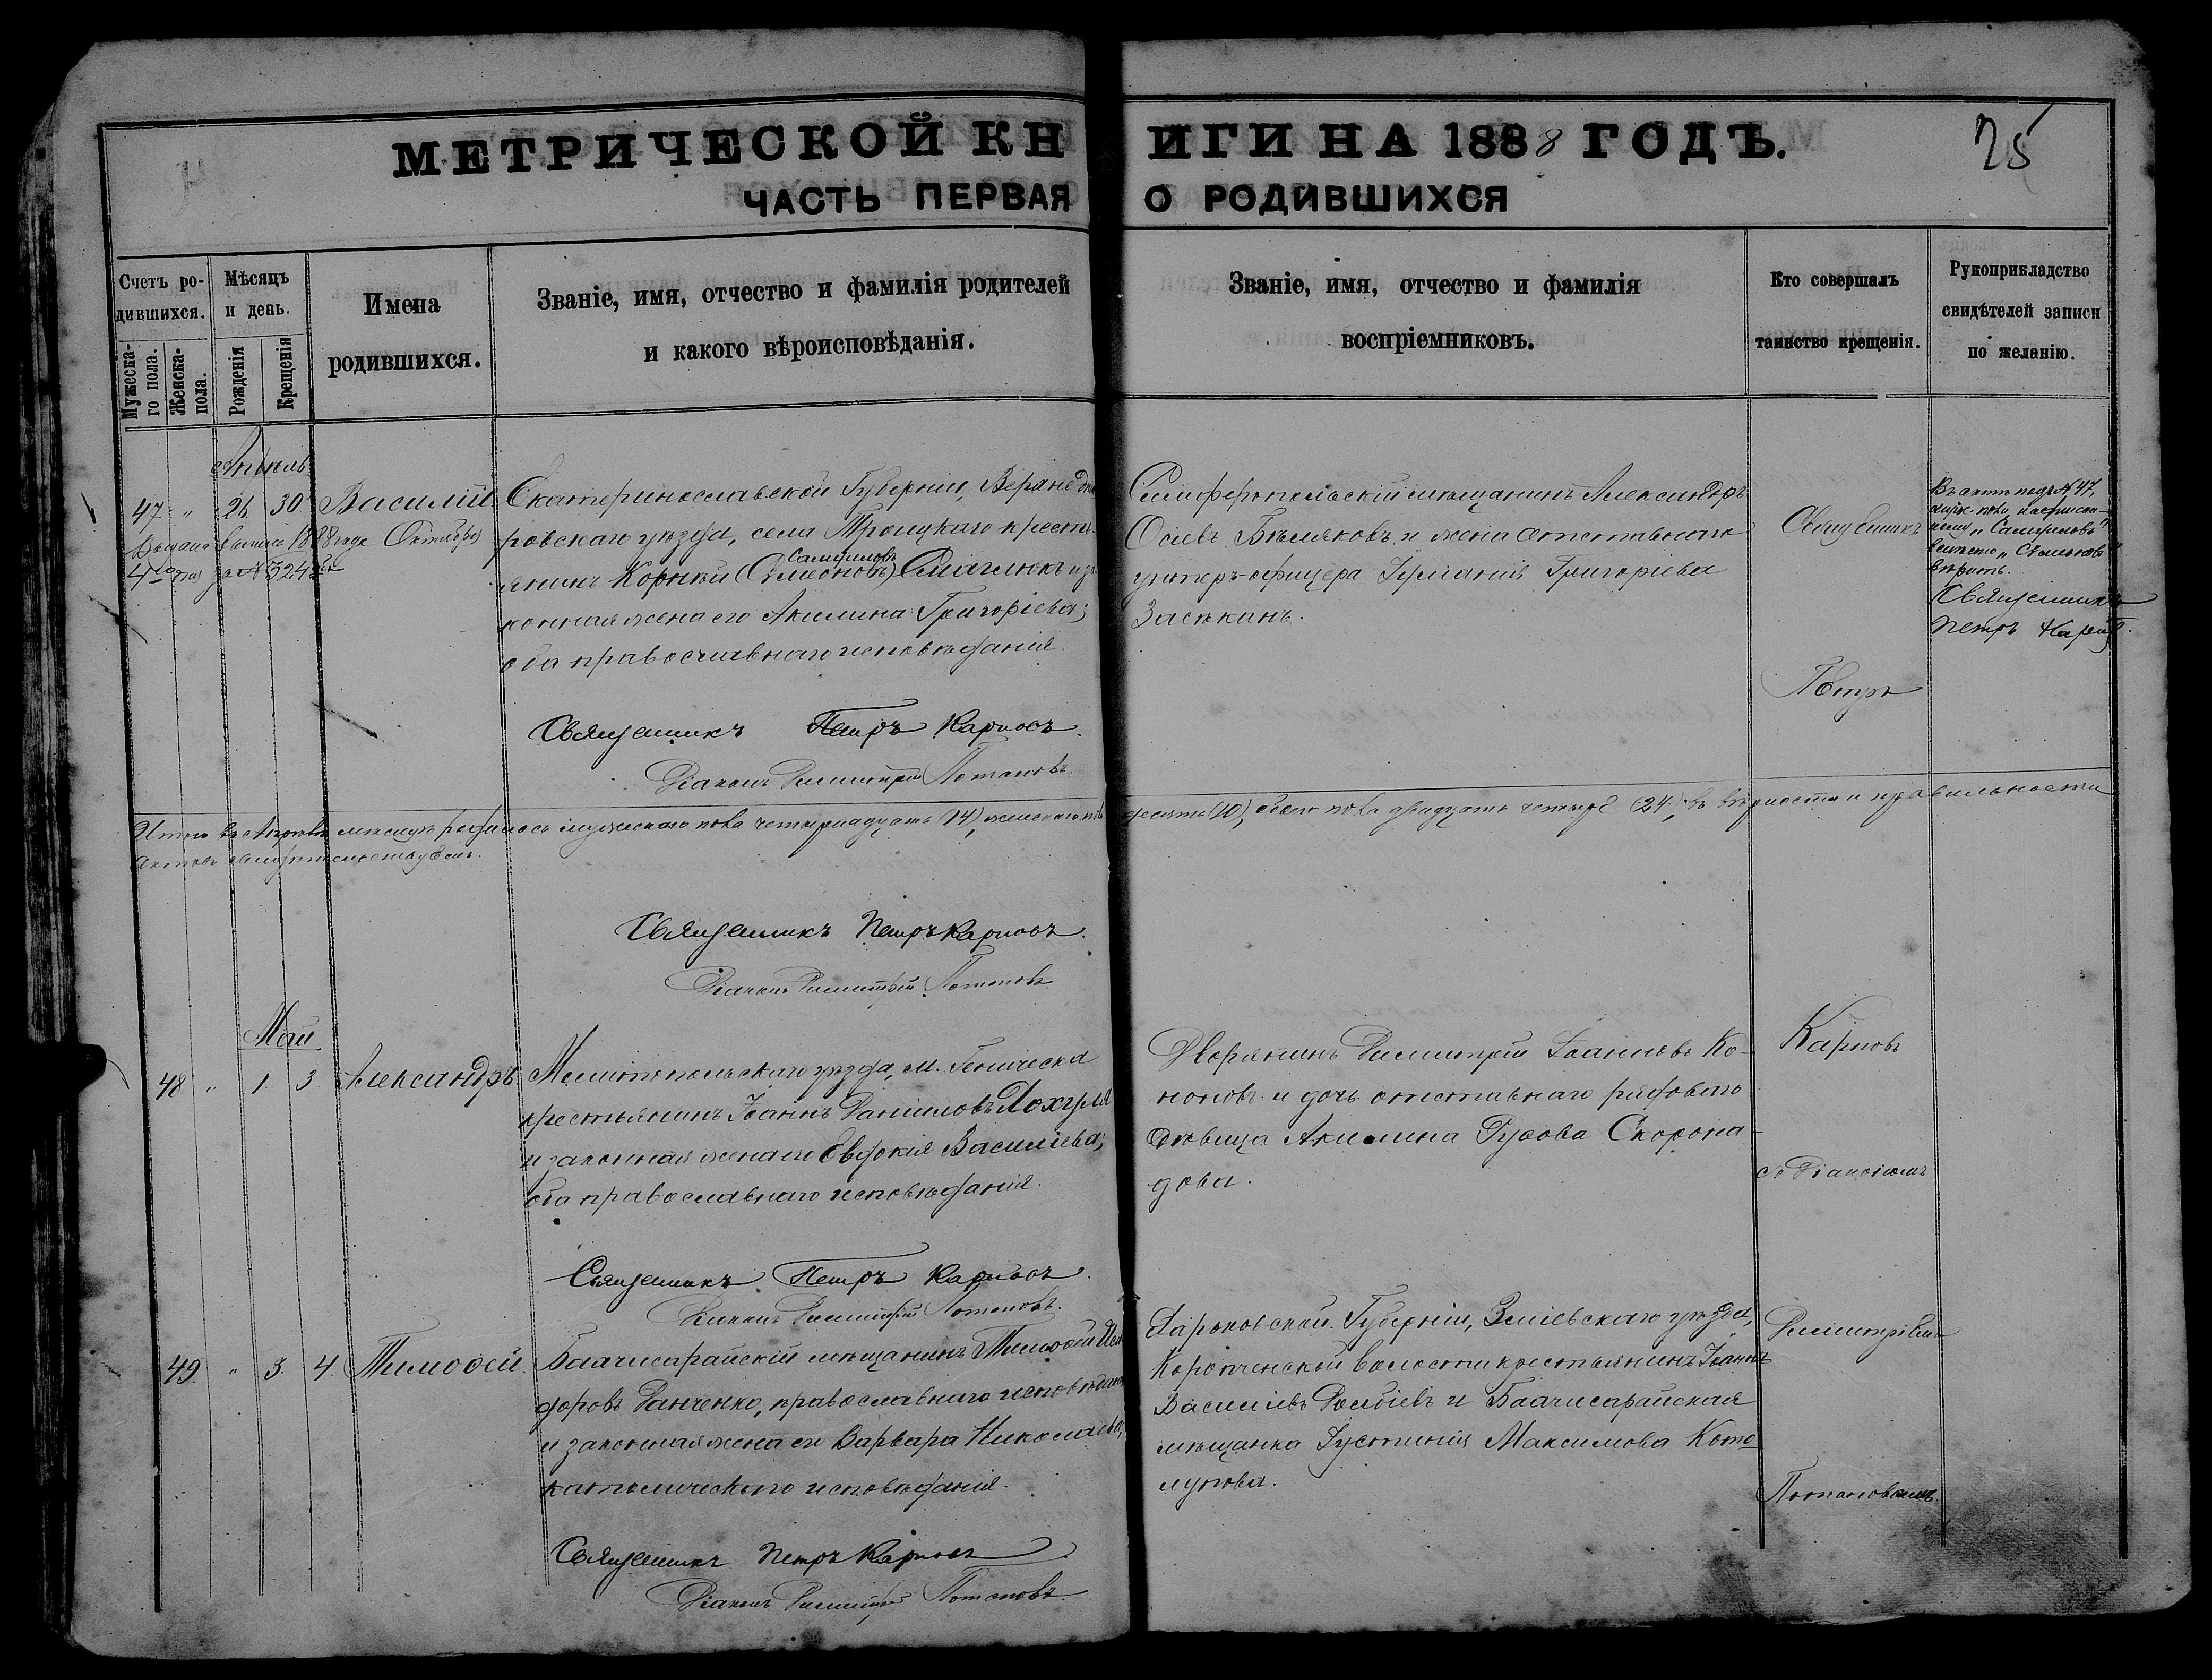 МЕТРИЧЕСКОЙ КНИГИ НА 1888 ГОДЪ.
25
ЧАСТЬ ПЕРВАЯ О РОДИВШИХСЯ
Счетъ родившихся.
Мужескаго пола.
Женска- пола.
Мѣсяцъ и день.
Рожденія
Крещенія
Имена родившихся.
Званіе, имя, отчество и фамилія родителей
и какого вѣроисповѣданія.
Званіе, имя, отчество и фамилія
воспріемниковъ.
Кто совершалъ
таинство крещенія.
Рукоприкладство
свидѣтелей записи
по желанію.
Апрѣль
47 " 26 30 Василій
Выдана выпись 1888 года Октября
4го дня за № 324
Екатеринославской Губерніи,
ровскаго уѣзда, села Троицкаго кресть-
янинъ Корнилій (Симеоновъ) Самуиловъ
конная жена его Акилина Григоріева;
оба православнаго исповѣданія.
Священникъ Петръ Карповъ.
Діаконъ Димитрій Потаповъ.
Симферопольскій мѣщанинъ Александръ
Осіевъ и жена отставнаго
унтеръ-офицера Григоріева
Священникъ
Петръ
Въ актѣ подъ № 47,
муж. пола, надписан-
ному „Самуиловъ"
вмѣсто „Симеоновъ"
вѣрить.
Священникъ
Петръ Карповъ.
Итого въ Апрѣлѣ мѣсяцѣ родилось мужескаго пола четырнадцать (14), женскаго пола десять (10), обоего пола двадцать четыре (24), въ вѣрности и правильности
актовъ свидѣтельствуемъ.
Священникъ Петръ Карповъ.
Діаконъ Димитрій Потаповъ
Май
48 " 1. 3. Александръ
Мелитопольскаго уѣзда, м. Геническа
крестьянинъ Іоаннъ Даниловъ
и законная жена его Евдокія Василіева;
оба православнаго исповѣданія.
Священникъ Петръ Карповъ.
Діаконъ Димитрій Потаповъ.
Дворянинъ Димитрій Іоанновъ Ко-
ноновъ и дочь отставнаго рядоваго
дѣвица Акилина Скоропа-
дова.
Карповъ
съ Діакономъ
49. " 3. 4. Тимоѳей.
Бахчисарайскій мѣщанинъ Тимоѳей
доровъ Данченко, православнаго исповѣдан.
и законная жена его Варвара Николаева,
католическаго исповѣданія.
Священникъ Петръ Карповъ
Діаконъ Димитрій Потаповъ.
Харьковской Губерніи, Зміевскаго уѣзда,
волости крестьянинъ Іоаннъ
Василіевъ и Бахчисарайская
мѣщанка Іустинія Максимова
Димитріемъ
Потаповымъ.